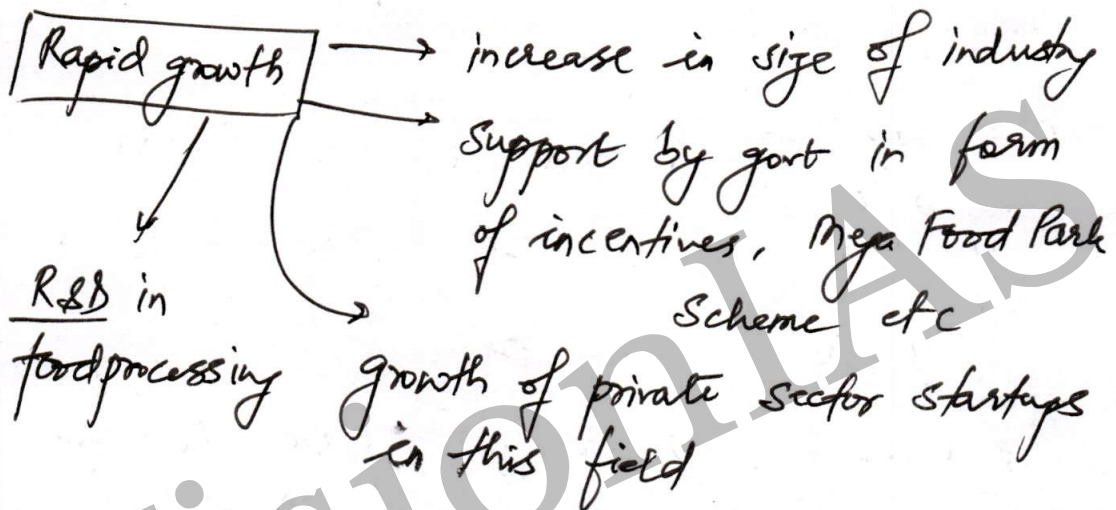 Rapid growth
increase in size of industry
Support by govt in form
of incentives, Mega Food Park
Scheme etc
R&D in
foodprocessing
growth of private sector startups
in this field
VisionIAS